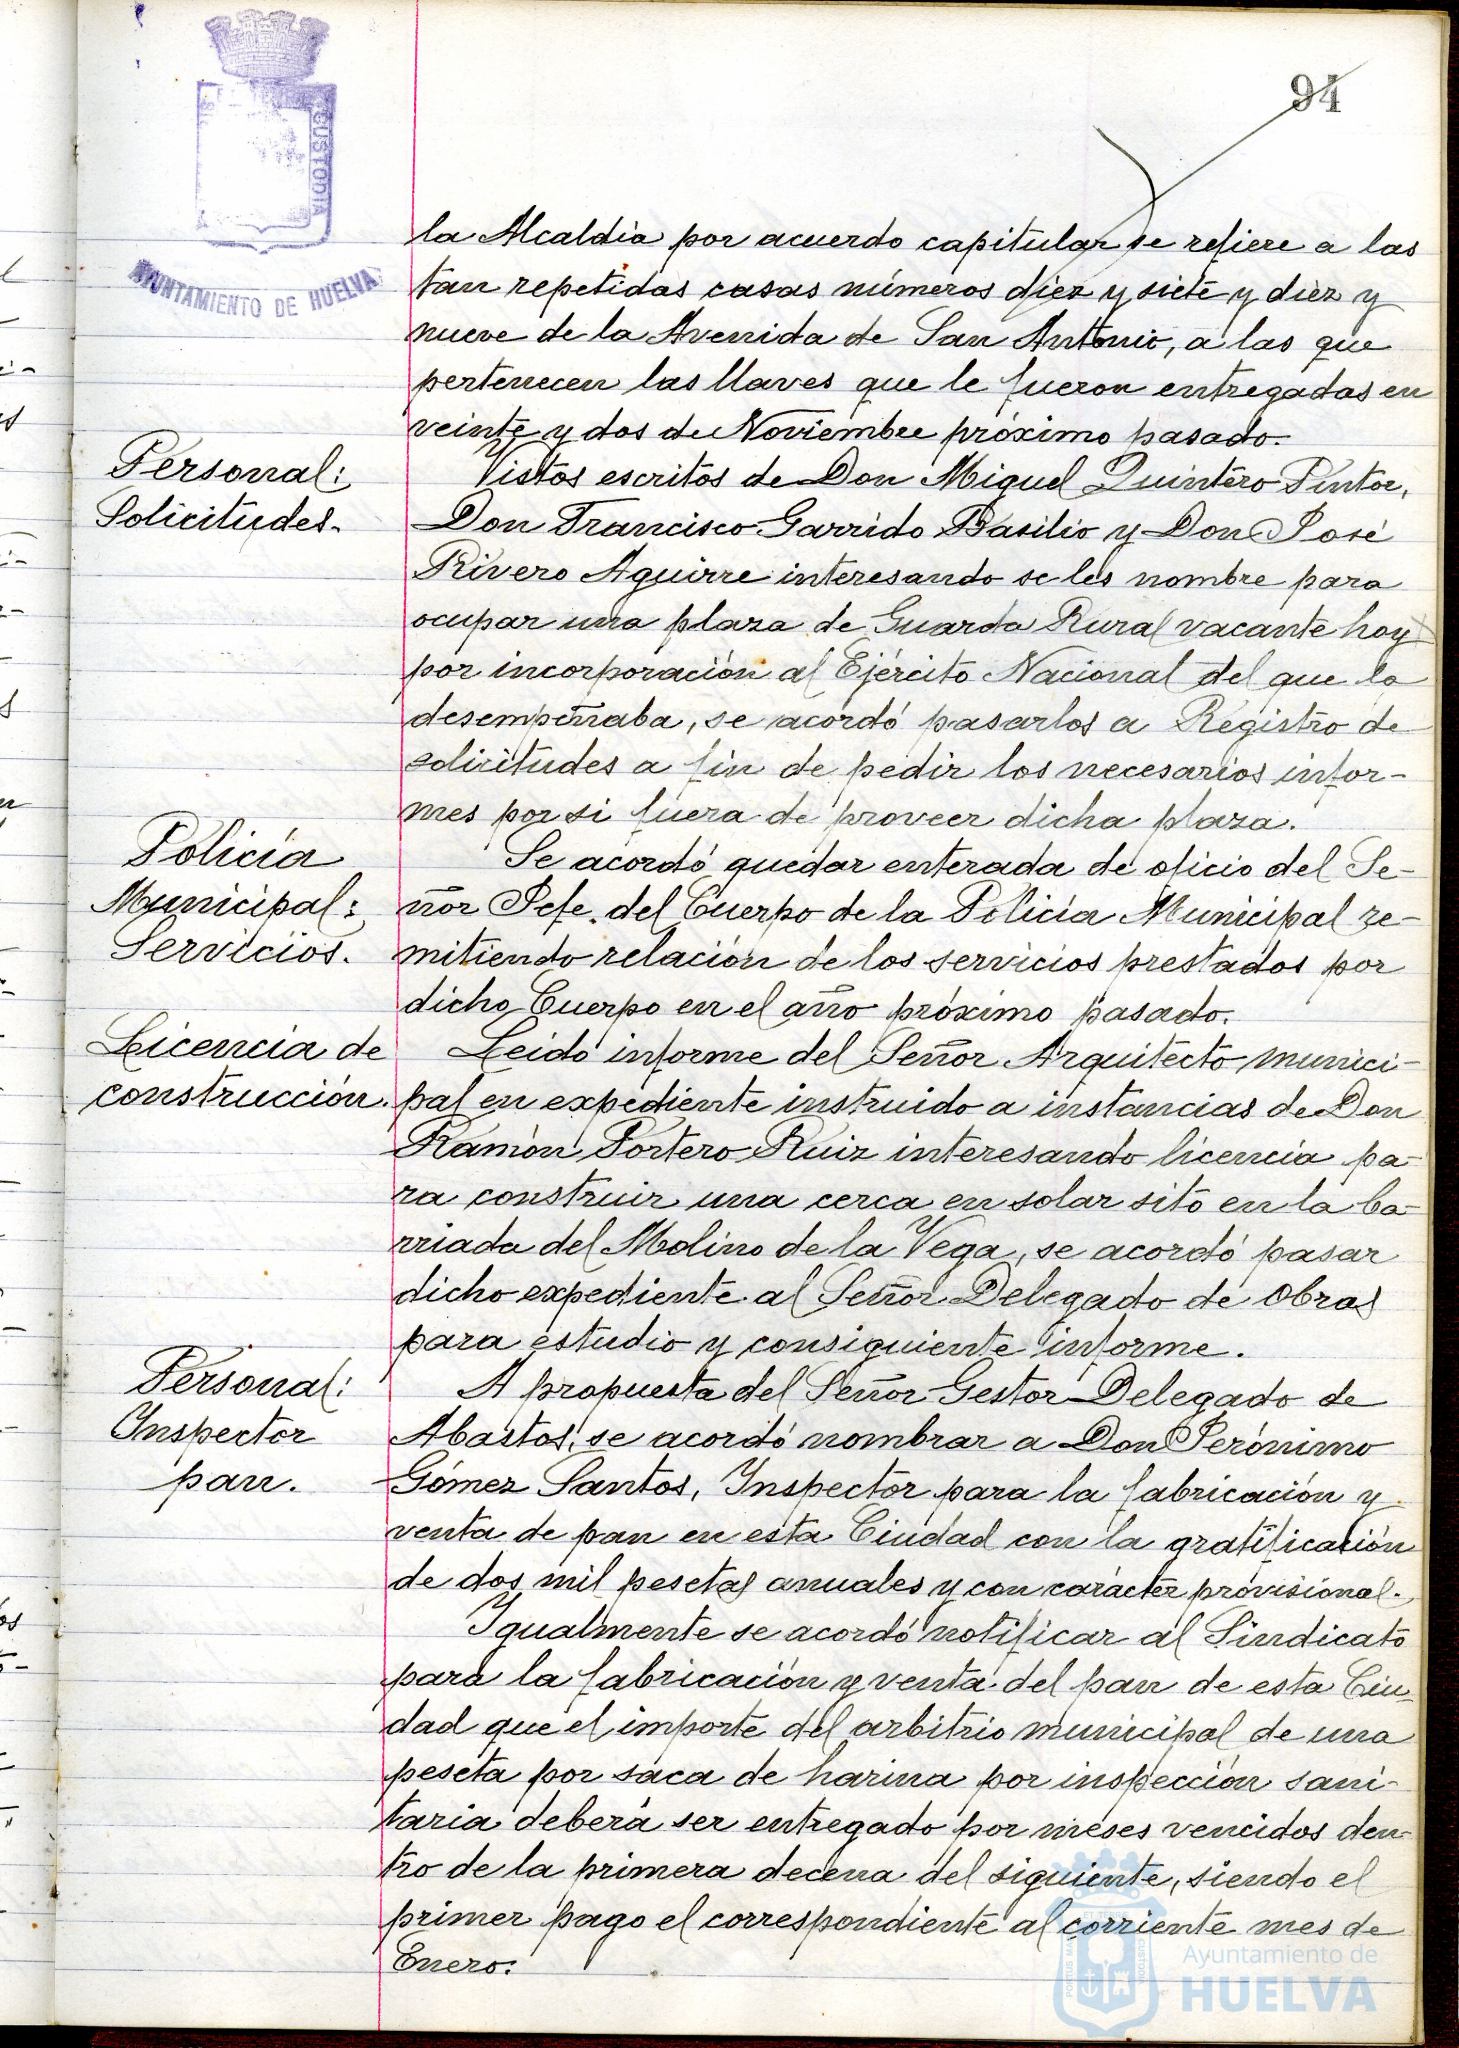 94
CUSTODIA
AYUNTAMIENTO DE HUELVA
la Alcaldia por acuerdo capitular se refiere a las
tan repetidas casas números diez y siete y diez y
nueve de la Avenida de San Antonio, a las que
pertenecen las llaves que le fueron entregadas en
veinte y dos de Noviembre próximo pasado.
Personal:
Solicitudes.
Vistos escritos de Don Miguel Quintero Pintor,
Don Francisco Garrido Basilio y Don José
Rivero Aguirre interesando se les nombre para
ocupar una plaza de Guarda Rural vacante hoy
por incorporación al Ejército Nacional del que la
desempeñaba, se acordó pasarlos a Registro de
solicitudes a fin de pedir los necesarios infor-
mes por si fuera de proveer dicha plaza.
Policía
Municipal:
Servicios.
Se acordó quedar enterada de oficio del Se-
ñor Jefe del Cuerpo de la Policía Municipal re-
mitiendo relación de los servicios prestados por
dicho Cuerpo en el año próximo pasado.
Licencia de
construcción.
Leido informe del Señor Arquitecto munici-
pal en expediente instruido a instancias de Don
Ramón Portero Ruiz interesando licencia pa-
ra construir una cerca en solar sito en la ba-
rriada del Molino de la Vega, se acordó pasar
dicho expediente al Señor Delegado de Obras
para estudio y consiguiente informe.
Personal:
Inspector
pan.
A propuesta del Señor Gestor Delegado de
Abastos, se acordó nombrar a Don Jerónimo
Gómez Santos, Inspector para la fabricación y
venta de pan en esta Ciudad con la gratificación
de dos mil pesetas anuales y con carácter provisional.
Igualmente se acordó notificar al Sindicato
para la fabricación y venta del pan de esta Ciu-
dad que el importe del arbitrio municipal de una
peseta por saca de harina por inspección sani-
taria deberá ser entregado por meses vencidos den-
tro de la primera decena del siguiente, siendo el
primer pago el correspondiente al corriente mes de
Enero.
Ayuntamiento de
HUELVA